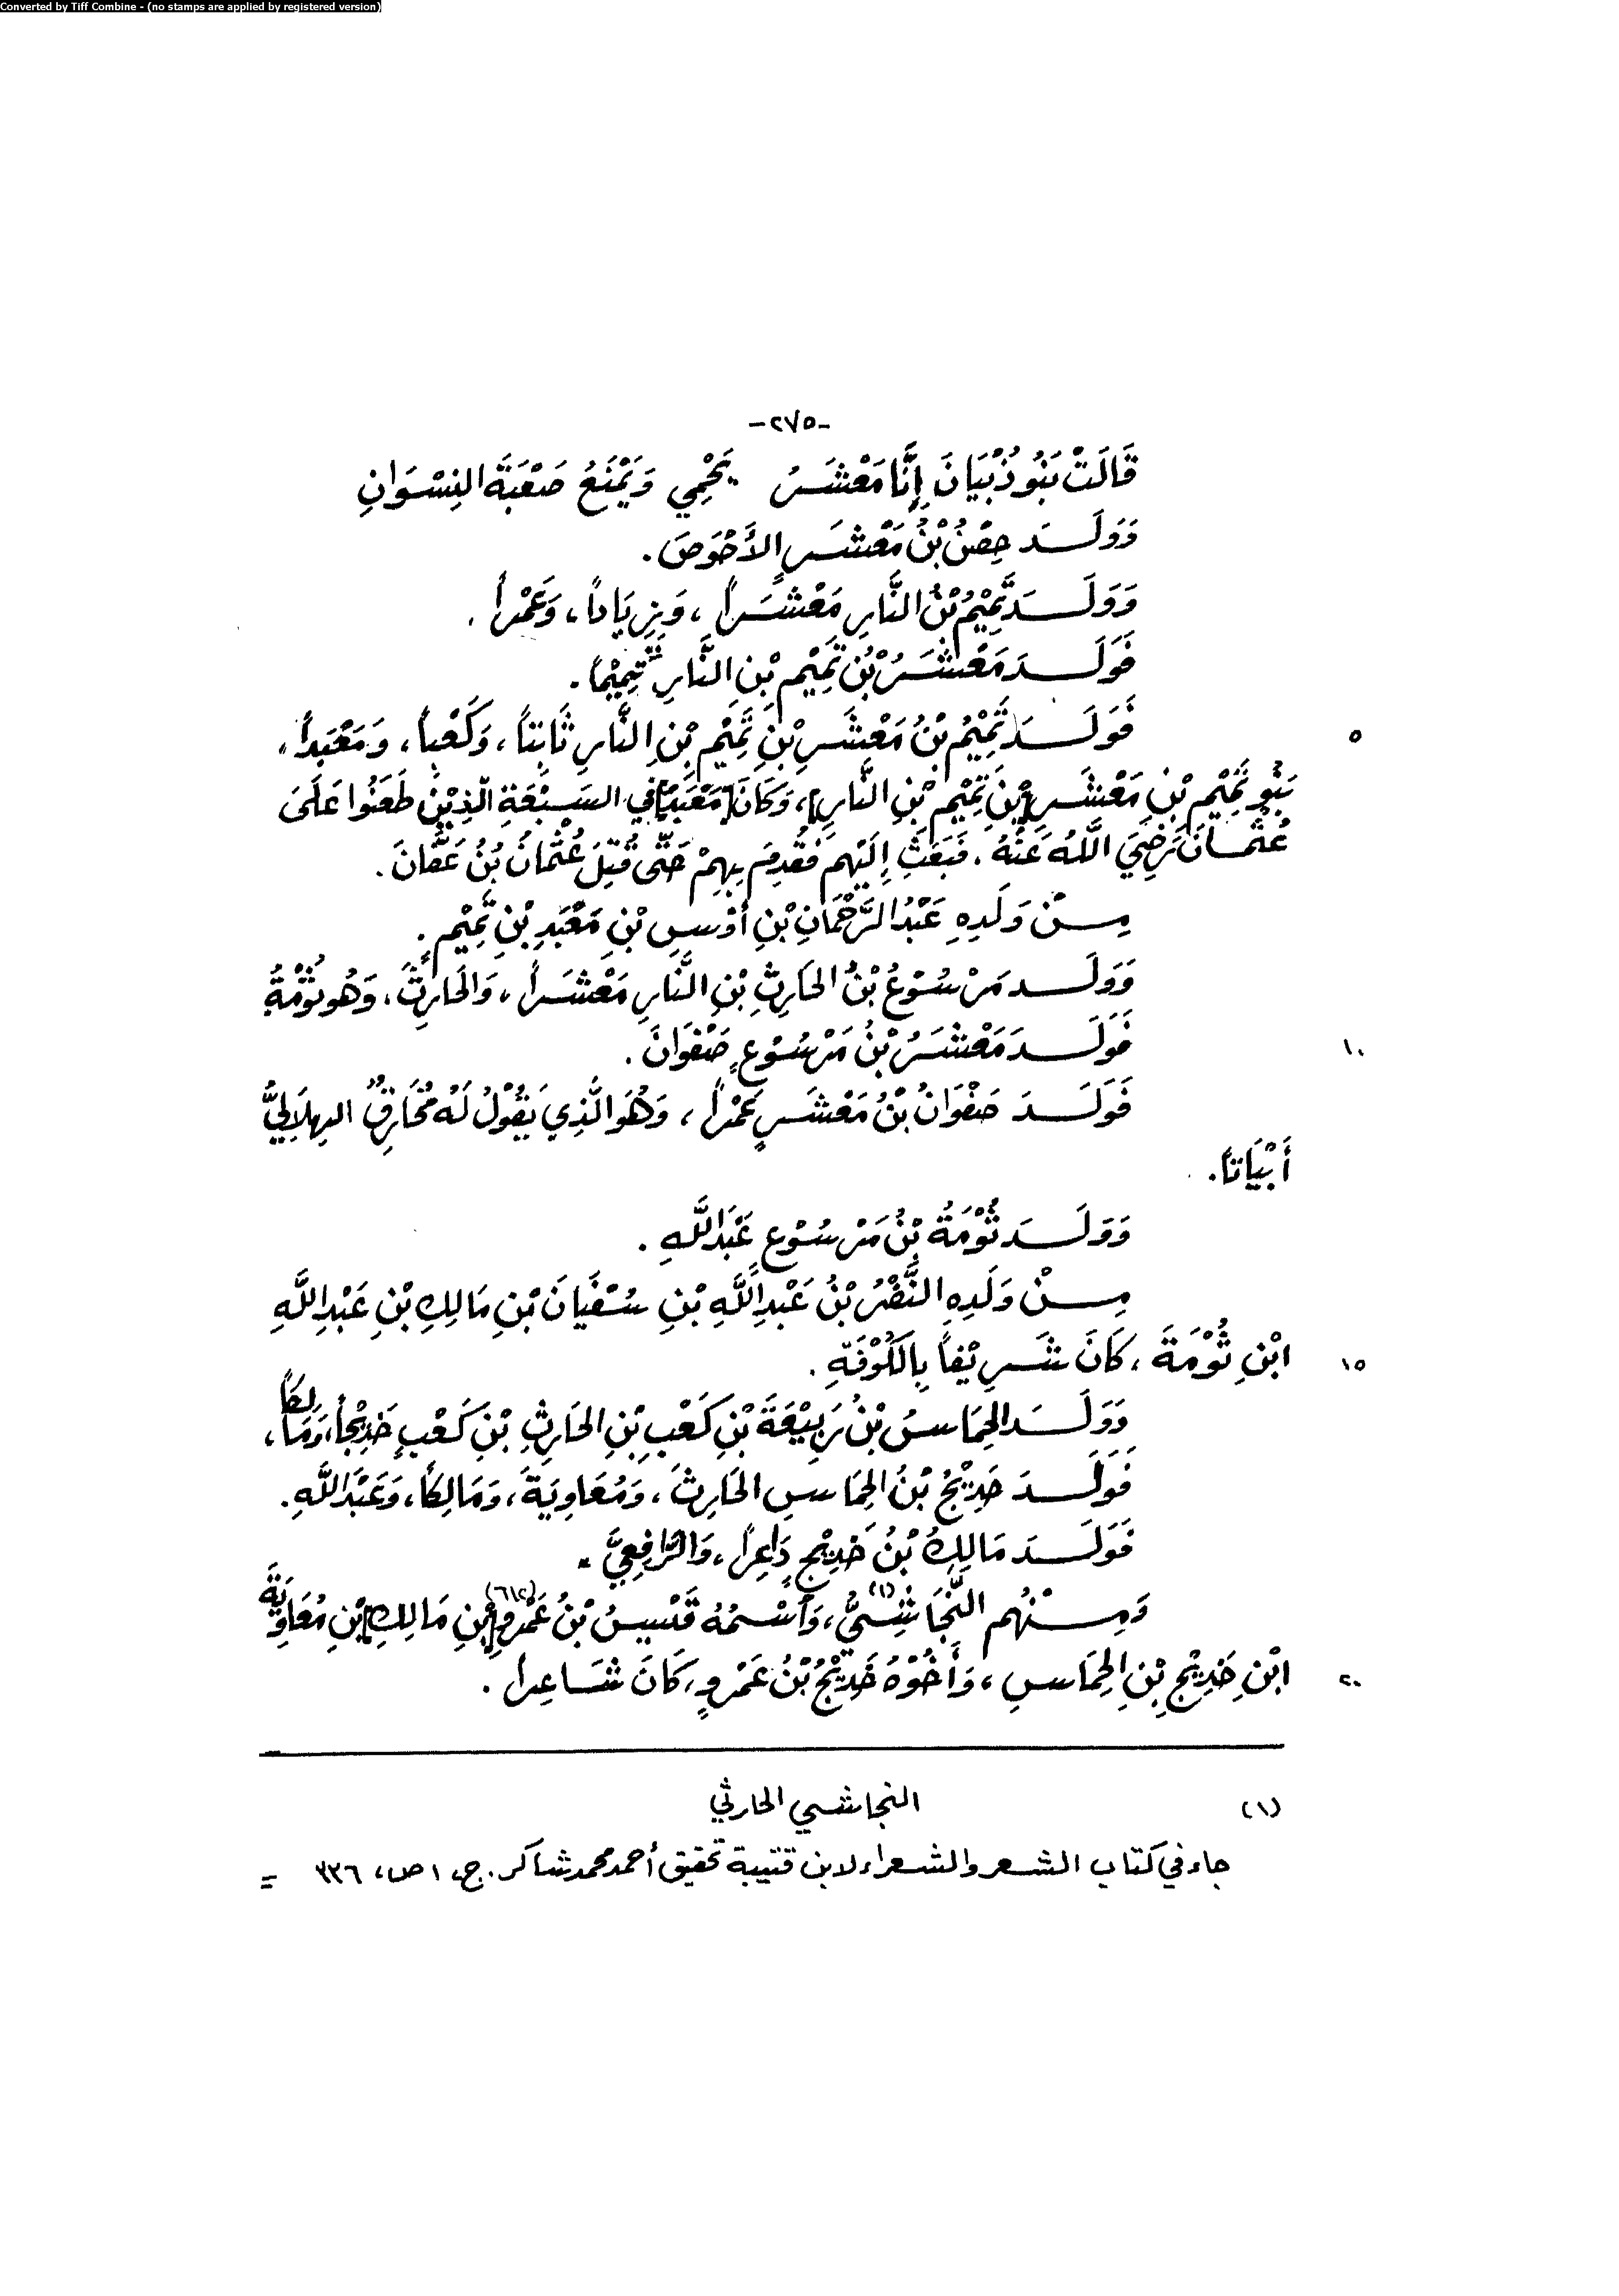 Converted by Tiff Combine - (no stamps are applied by registered version)
-٢٧٥-
قَالَتْ بَنُو ذُبْيَانَ إِنَّا مَعْشَرُ يَحْمِي وَيَمْنَعُ صَعْبَةَ النِسْوَانِ
وَوَلَدَ حِصْنُ بْنُ مَعْشَرٍ الأَحْوَصَ.
وَوَلَدَ تَمِيْمُ بْنُ النَّارِ مَعْشَراً، وَزِيَاداً، وَعَمْراً.
فَوَلَدَ مَعْشَرُ بْنُ تَمِيْمِ بْنِ النَّارِ تَمِيْماً.
٥ فَوَلَدَ تَمِيْمُ بْنُ مَعْشَرِ بْنِ تَمِيْمِ بْنِ النَّارِ ثَابِتاً، وَكَعْباً، وَمَعْبَداً،
بَنُو تَمِيْمِ بْنِ مَعْشَرِ [بْنِ تَمِيْمِ بْنِ النَّارِ]، وَكَانَ [مَعْبَدٌ] في السَبْعَةِ الّذِيْنَ طَعَنُوا عَلَى
عُثْمَانَ رَضِيَ اللَّهُ عَنْهُ، فَبَعَثَ إِلَيْهِم فَقُدِمَ بِهِمْ حَتَّى قُتِلَ عُثْمَانُ بْنُ عَفَّانَ.
مِنْ وَلَدِهِ عَبْدُ الرَّحْمَانِ بْنِ أَوْسِ بْنِ مَعْبَدِ بْنِ تَمِيْمٍ.
وَوَلَدَ مَرْسُوْعُ بْنُ الحَارِثِ بْنِ النَّارِ مَعْشَراً، وَالحَارِثَ، وَهُو ثُوْمَةُ
١٠ فَوَلَدَ مَعْشَرُ بْنُ مَرْسُوْعٍ صَفْوَانَ.
فَوَلَدَ صَفْوَانُ بْنُ مَعْشَرٍ عَمْراً، وَهُوَ الَّذِي يَقُوْلُ لَهُ مُخَارِقُ الهِلَالِيُّ
أَبْيَاتاً.
وَوَلَدَ ثُوْمَةُ بْنُ مَرْسُوْعِ عَبْدَاللَّهِ.
مِنْ وَلَدِهِ النَّضْرُ بْنُ عَبْدِاللَّهِ بْنِ سُفْيَانَ بْنِ مَالِكِ بْنِ عَبْدِاللَّهِ
١٥ ابْنِ ثُوْمَةَ، كَانَ شَرِيْفاً بِالكُوْفَةِ.
وَوَلَدَ الحِمَاسُ بْنُ رَبِيْعَةَ بْنِ كَعْبِ بْنِ الحَارِثِ بْنِ كَعْبٍ خَدِيْجاً، وَمَالِكاً،
فَوَلَدَ خَدِيْجُ بْنُ الحِمَاسِ الحَارِثَ، وَمُعَاوِيَةَ، وَمَالِكاً، وَعَبْدَاللَّهِ.
فَوَلَدَ مَالِكُ بْنُ خَدِيْجٍ دَاعِراً، وَالرَّافِعِيَّ.
وَمِنْهُم النَّجَاشِيُّ(١)، وَاسْمُهُ قَيْسُ بْنُ عَمْرِو(٦١٢) [بْنِ مَالِكِ] بْنِ مُعَاوِيَةَ
٢٠ ابْنِ خَدِيْجِ بْنِ الحِمَاسِ، وَأَخُوْهُ خَدِيْجُ بْنُ عَمْرٍو، كَانَ شَاعِراً.
(١) النجاشي الحارثي
جاء في كتاب الشعر والشعراء لابن قتيبة تحقيق أحمد محمد شاكر. ج، ١ ص، ٣٢٦ =